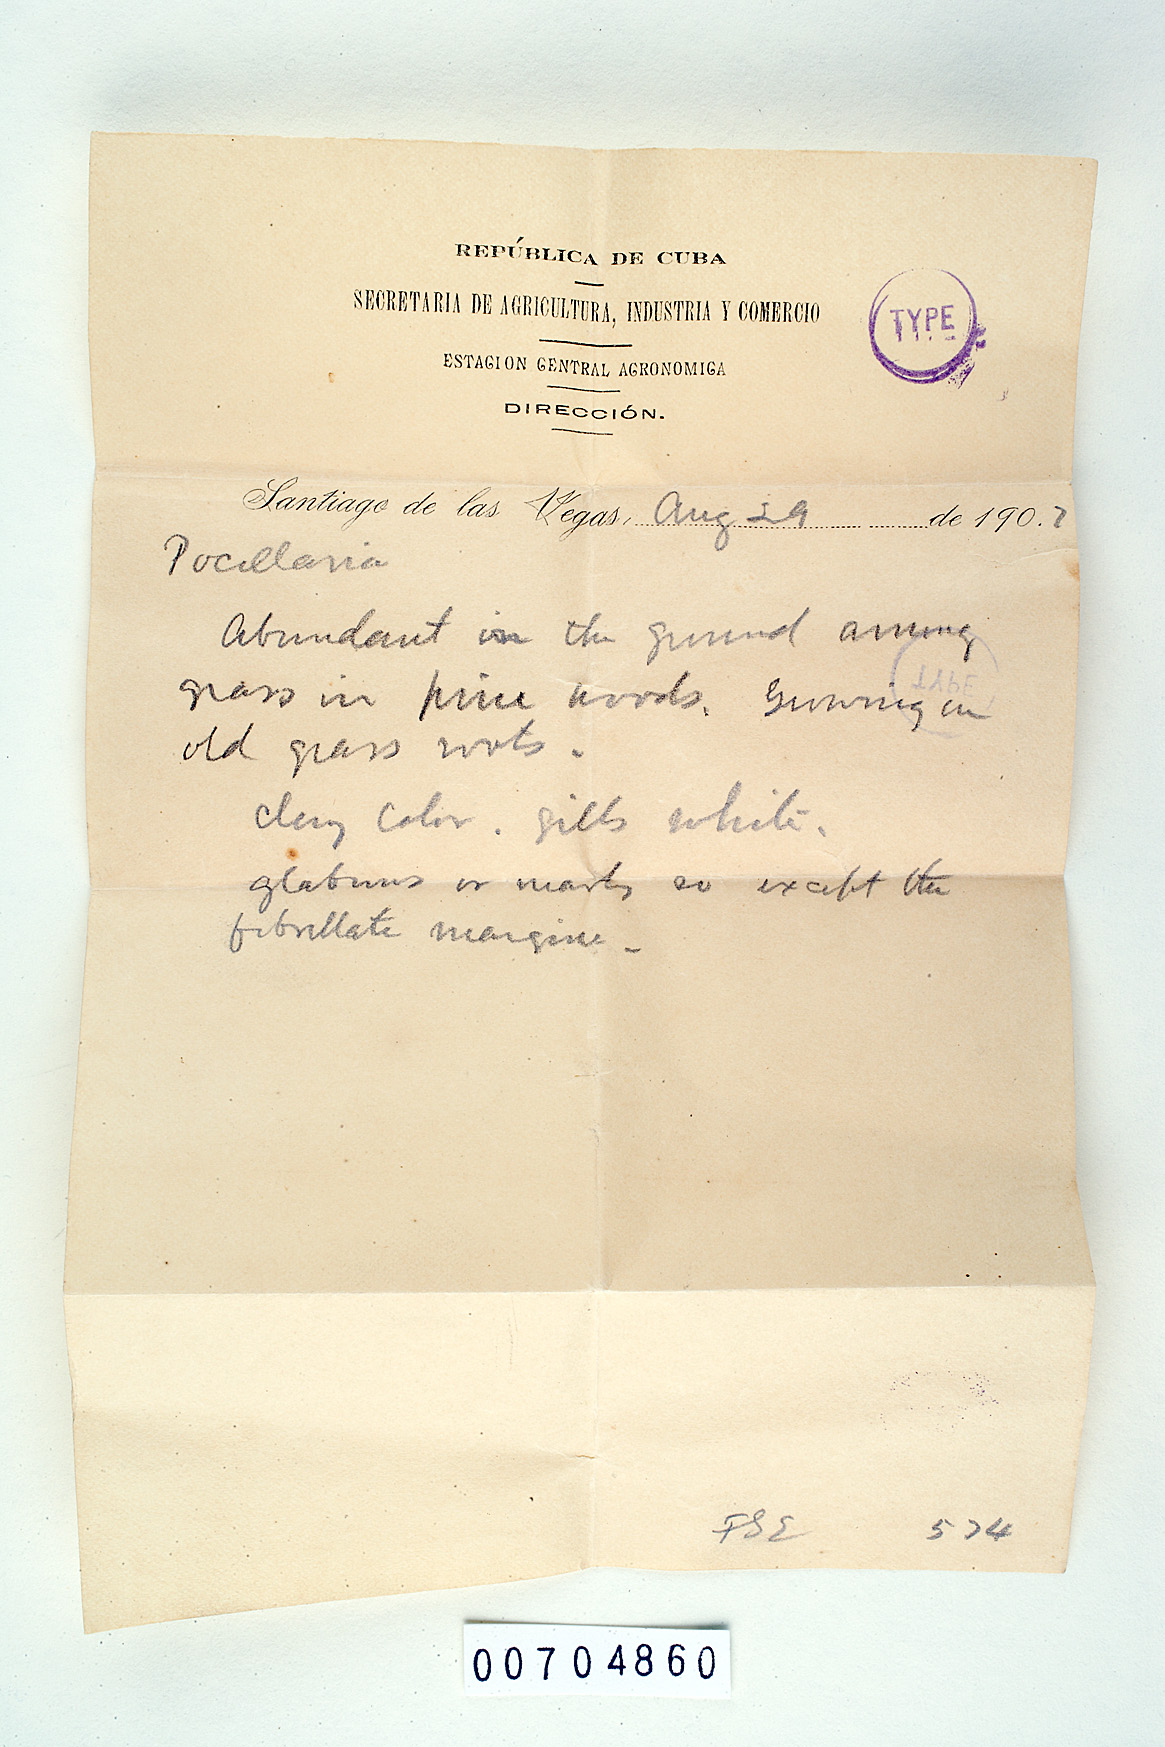 REPÚBLICA DE CUBA
SECRETARIA DE AGRICULTURA, INDUSTRIA Y COMERCIO
TYPE
ESTACION CENTRAL AGRONOMICA
DIRECCIÓN.
Santiago de las Vegas, Aug 29 de 190.7
Pocillaria
Abundant in the ground among
grass in pine woods. Growing on
TYPE
old grass roots.
clay color. gills white.
glabrous or nearly so except the
fibrillate margine -
FSE 574
00704860